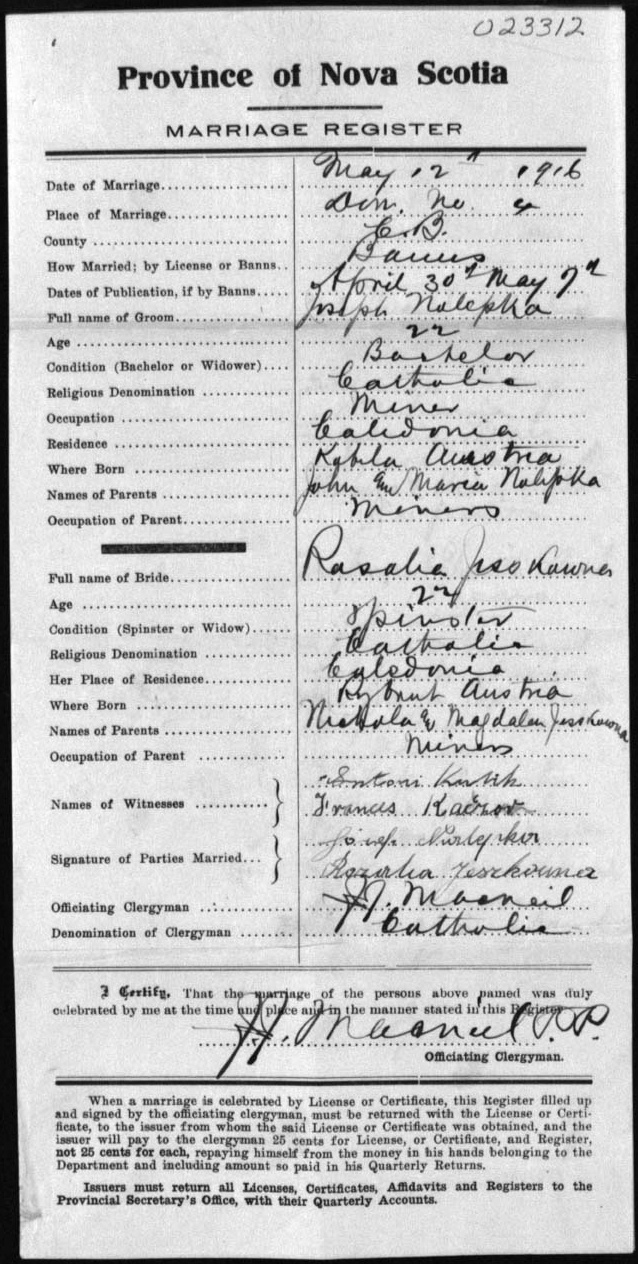 023312
Province of Nova Scotia
MARRIAGE REGISTER
Date of Marriage May 12th 1916
Place of Marriage Dom. No. 4
County C. B.
How Married; by License or Banns Banns
Dates of Publication, if by Banns April 30th May 7th
Full name of Groom Joseph Nalepka
Age 22
Condition (Bachelor or Widower) Bachelor
Religious Denomination Catholic
Occupation Miner
Residence Caledonia
Where Born Kobila Austria
Names of Parents John & Maria Nalepka
Occupation of Parent Miners
Full name of Bride Rosalia Jesskowna
Age 22
Condition (Spinster or Widow) Spinster
Religious Denomination Catholic
Her Place of Residence Caledonia
Where Born Austria
Names of Parents & Magdalen Jesskowna
Occupation of Parent Miners
Names of Witnesses
Francis
Signature of Parties Married
Officiating Clergyman Macneil
Denomination of Clergyman Catholic
I Certify, That the marriage of the persons above named was duly
celebrated by me at the time and place and in the manner stated in this Register
Macneil P. P.
Officiating Clergyman.
When a marriage is celebrated by License or Certificate, this Register filled up
and signed by the officiating clergyman, must be returned with the License or Certi-
ficate, to the issuer from whom the said License or Certificate was obtained, and the
issuer will pay to the clergyman 25 cents for License, or Certificate, and Register,
not 25 cents for each, repaying himself from the money in his hands belonging to the
Department and including amount so paid in his Quarterly Returns.
Issuers must return all Licenses, Certificates, Affidavits and Registers to the
Provincial Secretary's Office, with their Quarterly Accounts.